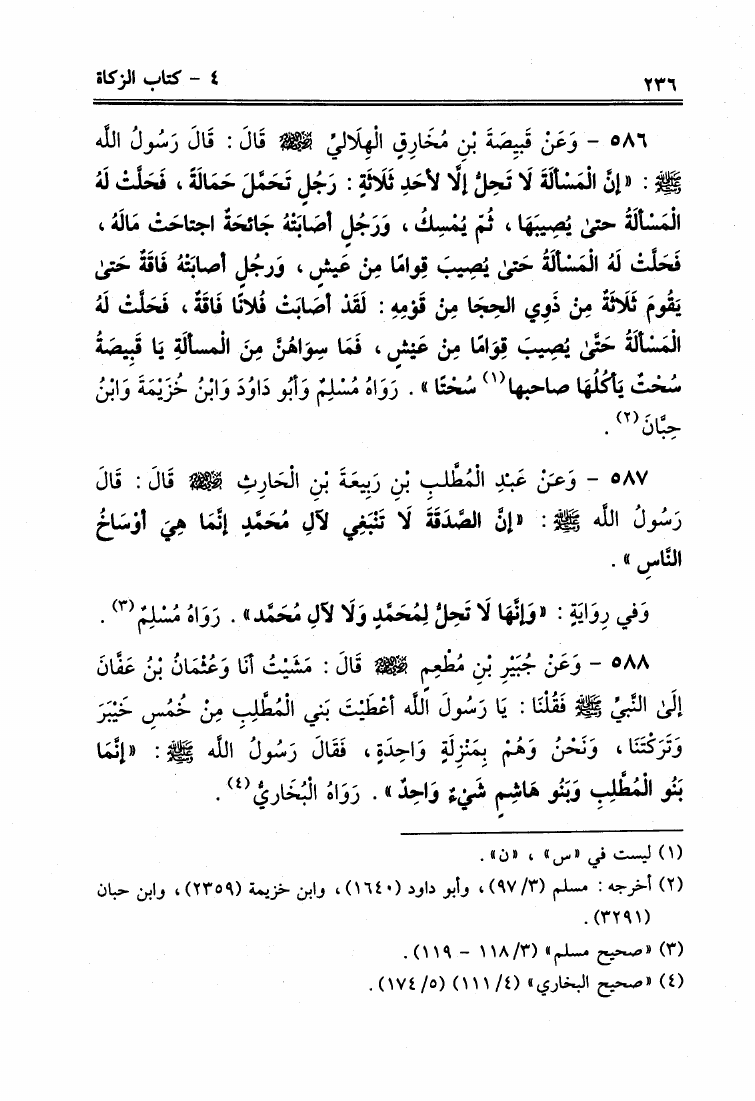 ٢٣٦ ٤ - كتاب الزكاة
٥٨٦ - وَعَنْ قَبِيصَةَ بْنِ مُخَارِقٍ الْهِلَالِيِّ ﵁ قَالَ: قَالَ رَسُولُ اللَّه
ﷺ: «إِنَّ الْمَسْأَلَةَ لَا تَحِلُّ إِلَّا لأَحَدِ ثَلَاثَةٍ: رَجُلٍ تَحَمَّلَ حَمَالَةً، فَحَلَّتْ لَهُ
الْمَسْأَلَةُ حتىٰ يُصِيبَهَا، ثُمّ يُمْسِكُ، وَرَجُلٍ أصَابَتْهُ جَائحَةٌ اجتاحَتْ مَالَهُ،
فَحَلَّتْ لَهُ الْمَسْأَلَةُ حَتىٰ يُصِيبَ قِوامًا مِنْ عَيشٍ، ورَجُلٍ أصابَتْهُ فَاقَةٌ حَتىٰ
يَقُومَ ثَلَاثَةٌ مِنْ ذَوِي الحِجَا مِنْ قَوْمِهِ: لَقَدْ أصَابَتْ فُلانًا فَاقَةٌ، فَحَلَّتْ لَهُ
الْمَسْأَلَةُ حَتَّىٰ يُصِيبَ قِوَامًا مِن عَيْشٍ، فَمَا سِوَاهُنَّ مِنَ المسألَةِ يَا قَبِيصَةُ
سُحْتٌ يَأْكُلُهَا صاحبها(١) سُحْتًا». رَوَاهُ مُسْلِمٌ وَأَبُو دَاوُدَ وَابْنُ خُزَيْمَةَ وَابْنُ
حِبَّانَ(٢).
٥٨٧ - وَعَنْ عَبْدِ الْمُطَّلبِ بْنِ رَبِيعَةَ بْنِ الْحَارِثِ ﵁ قَالَ: قَالَ
رَسُولُ اللَّه ﷺ: «إنَّ الصَّدَقَةَ لَا تَنْبَغِي لآلِ مُحَمَّدٍ إِنَّمَا هِيَ أوْسَاخُ
النَّاسِ».
وَفي رِوَايَةٍ: «وَإِنَّهَا لَا تَحِلُّ لِمُحَمَّدٍ وَلَا لآلِ مُحَمَّد». رَوَاهُ مُسْلِمٌ(٣).
٥٨٨ - وَعَنْ جُبَيْرِ بْنِ مُطْعِمٍ ﵁ قَالَ: مَشَيْتُ أَنَا وَعُثْمَانُ بْنُ عَفَّانَ
إِلَىٰ النَّبِيِّ ﷺ فَقُلْنَا: يَا رَسُولَ اللَّه أعْطَيْتَ بَني الْمُطَّلِبِ مِنْ خُمُسِ خَيْبَرَ
وَتَرَكْتَنَا، وَنَحْنُ وَهُمْ بِمَنْزِلَةٍ وَاحِدَةٍ، فَقَالَ رَسُولُ اللَّه ﷺ: «إنَّمَا
بَنُو الْمُطَّلِبِ وَبَنُو هَاشِمٍ شَيْءٌ وَاحِدٌ». رَوَاهُ الْبُخَارِيُّ(٤).
(١) ليست في «س»، «ن».
(٢) أخرجه: مسلم (٣/ ٩٧)، وأبو داود (١٦٤٠)، وابن خزيمة (٢٣٥٩)، وابن حبان
(٣٢٩١).
(٣) «صحيح مسلم» (٣/ ١١٨ - ١١٩).
(٤) «صحيح البخاري» (٤/ ١١١) (٥/ ١٧٤).